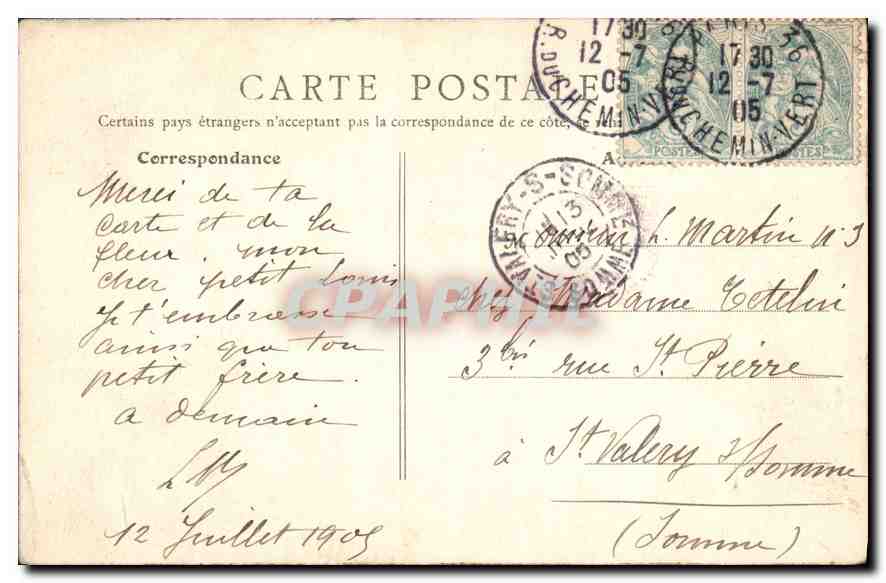 CARTE POSTALE
Certains pays étrangers n'acceptant pas la correspondance de ce côté, se
Correspondance
Merci de ta
carte et de la
fleur, mon
cher petit Louis
Je t'embrasse
ainsi que ton
petit frère.
a demain
LM
12 Juillet 1905
Monsieur L. Martin n° 3
chez Madame Tetelin
3 bis rue St Pierre
à St Valery s/Somme
(Somme)
17 30
12 -7
05
R. DU CHEMIN-VERT
PARIS 36
17 30
12 -7
05
CHEMIN-VERT
POSTES
POSTES
VALERY-S-SOMME
13
05
SOMME
CPAPHIL